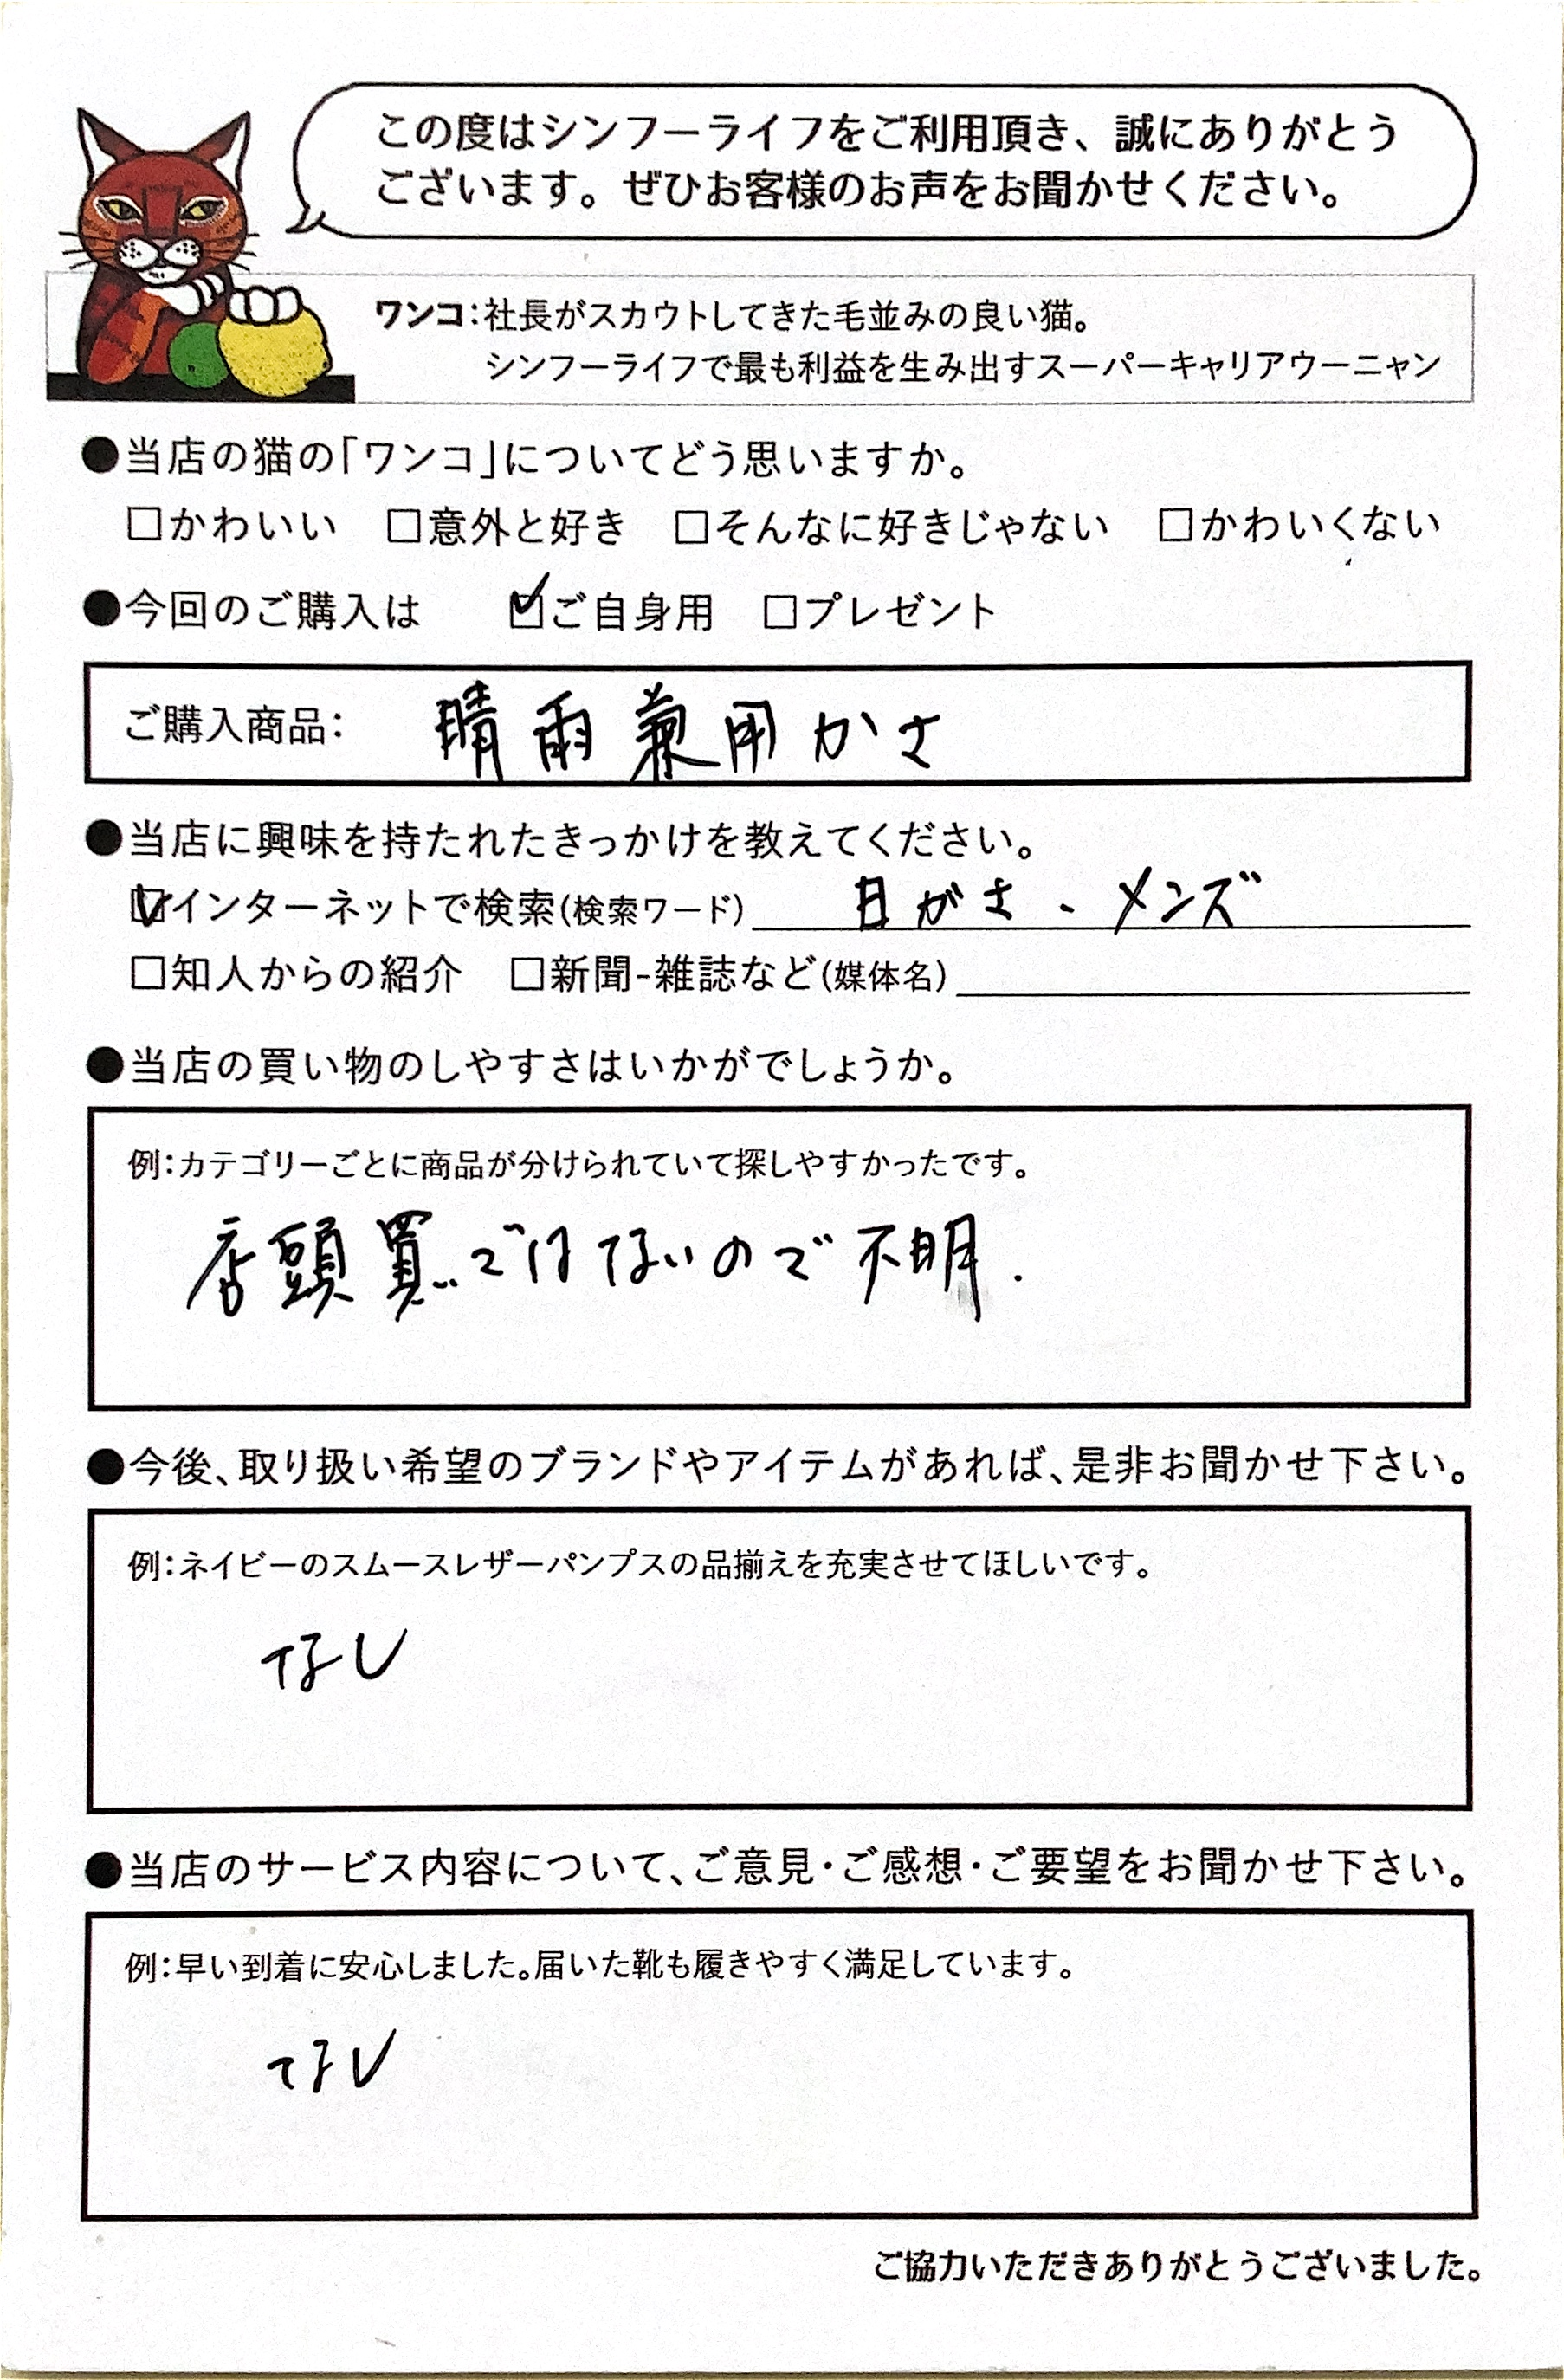 この度はシンフーライフをご利用頂き、誠にありがとう
ございます。ぜひお客様のお声をお聞かせください。
ワンコ：社長がスカウトしてきた毛並みの良い猫。
シンフーライフで最も利益を生み出すスーパーキャリアウーニャン
●当店の猫の「ワンコ」についてどう思いますか。
□かわいい □意外と好き □そんなに好きじゃない □かわいくない
●今回のご購入は ☑ご自身用 □プレゼント
ご購入商品： 晴雨兼用かさ
●当店に興味を持たれたきっかけを教えてください。
☑インターネットで検索(検索ワード) 日がさ - メンズ
□知人からの紹介 □新聞-雑誌など(媒体名)
●当店の買い物のしやすさはいかがでしょうか。
例：カテゴリーごとに商品が分けられていて探しやすかったです。
店頭買いではないので不明.
●今後、取り扱い希望のブランドやアイテムがあれば、是非お聞かせ下さい。
例：ネイビーのスムースレザーパンプスの品揃えを充実させてほしいです。
なし
●当店のサービス内容について、ご意見・ご感想・ご要望をお聞かせ下さい。
例：早い到着に安心しました。届いた靴も履きやすく満足しています。
なし
ご協力いただきありがとうございました。